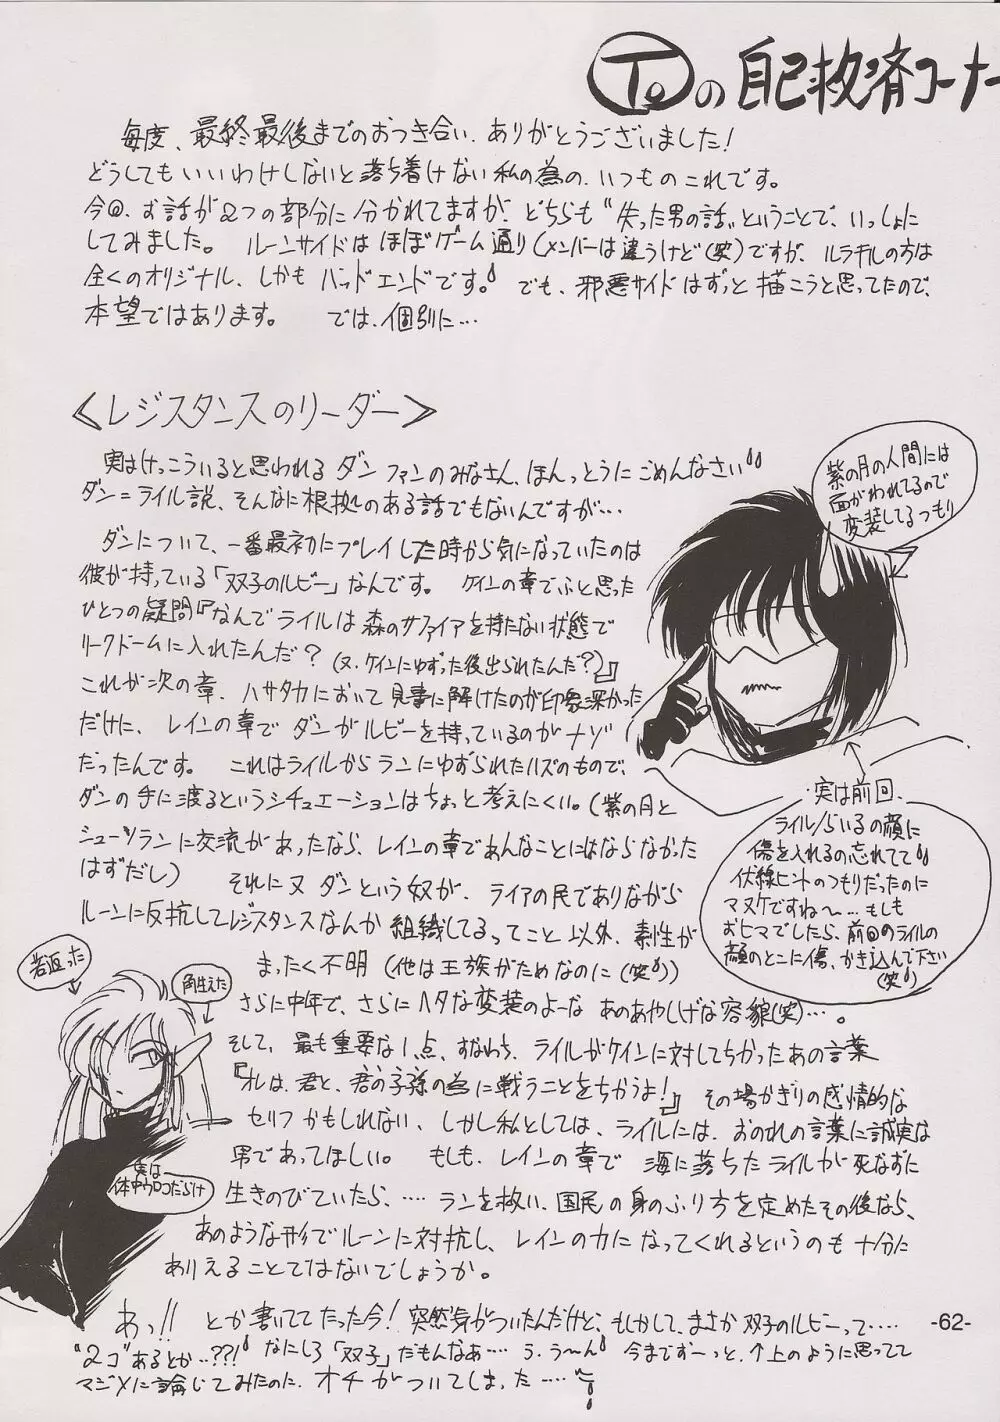 Toの自己救済コーナー
毎度、最終最後までのおつき合い、ありがとうございました！
どうしてもいいわけしないと落ち着けない私の為の、いつものこれです。
今回、お話が2つの部分に分かれてますが、どちらも“失った男の話”ということで、いっしょに
してみました。 ルーンサイドはほぼゲーム通り(メンバーは違うけど(笑)ですが、ルラギルの方は
全くのオリジナル、しかもバッドエンドです。 でも、邪悪サイドはずっと描こうと思ってたので、
本望ではあります。 では、個別に…
≪レジスタンスのリーダー≫
実はけっこういると思われるダンファンのみなさん、ほんっとうにごめんなさい
ダン＝ライル説、そんなに根拠のある話でもないんですが…
ダンについて、一番最初にプレイした時から気になっていたのは
彼が持っている「双子のルビー」なんです。 ケインの章でふと思った
ひとつの疑問『なんでライルは森のサファイアを持たない状態で
リークドームに入れたんだ？(又、ケインにゆずった後出られたんだ？)』
これが次の章、ハサタカにおいて見事に解けたのが印象深かった
だけに、レインの章でダンがルビーを持っているのがナゾ
だったんです。 これはライルからランにゆずられたハズのもので、
ダンの手に渡るというシチュエーションはちょっと考えにくい。(紫の月と
シューツランに交流があったなら、レインの章であんなことにはならなかった
はずだし) それに又ダンという奴が、ライアの民でありながら
ルーンに反抗してレジスタンスなんか組織してるってこと以外、素性が
まったく不明(他は王族がためなのに(笑))
さらに中年で、さらにハタな変装のよーなあのあやしげな容貌(笑)…。
そして、最も重要な1点、すなわち、ライルがケインに対してちかったあの言葉
『オレは、君と、君の子孫の為に戦うことをちかうよ！』 その場かぎりの感情的な
セリフかもしれない、しかし私としては、ライルには、おのれの言葉に誠実な
男であってほしい。 もしも、レインの章で海に落ちたライルが死なずに
生きのびていたら、…… ランを救い、国民の身のふり方を定めたその後なら、
あのような形でルーンに対抗し、レインの力になってくれるというのも十分に
ありえることではないでしょうか。
あっ！！ とか書いててたった今！突然気がついたんだけど、もしかして、まさか双子のルビーって……
“2コ”あるとか‥??! なにしろ「双子」だもんなあ…… う、うーん 今まずーっと、↑上のように思ってて
マジメに論じてみたのに、オチがついてしまった……
紫の月の人間には
面がわれてるので
変装してるつもり
実は前回、
ライル/らいるの顔に
傷を入れるの忘れてて
伏線ヒントのつもりだったのに
マヌケですね〜…もしも
おヒマでしたら、前回のライルの
顔のとこに傷、かき込んで下さい
(笑)
若返った
角生えた
実は
体中ウロコだらけ
-62-